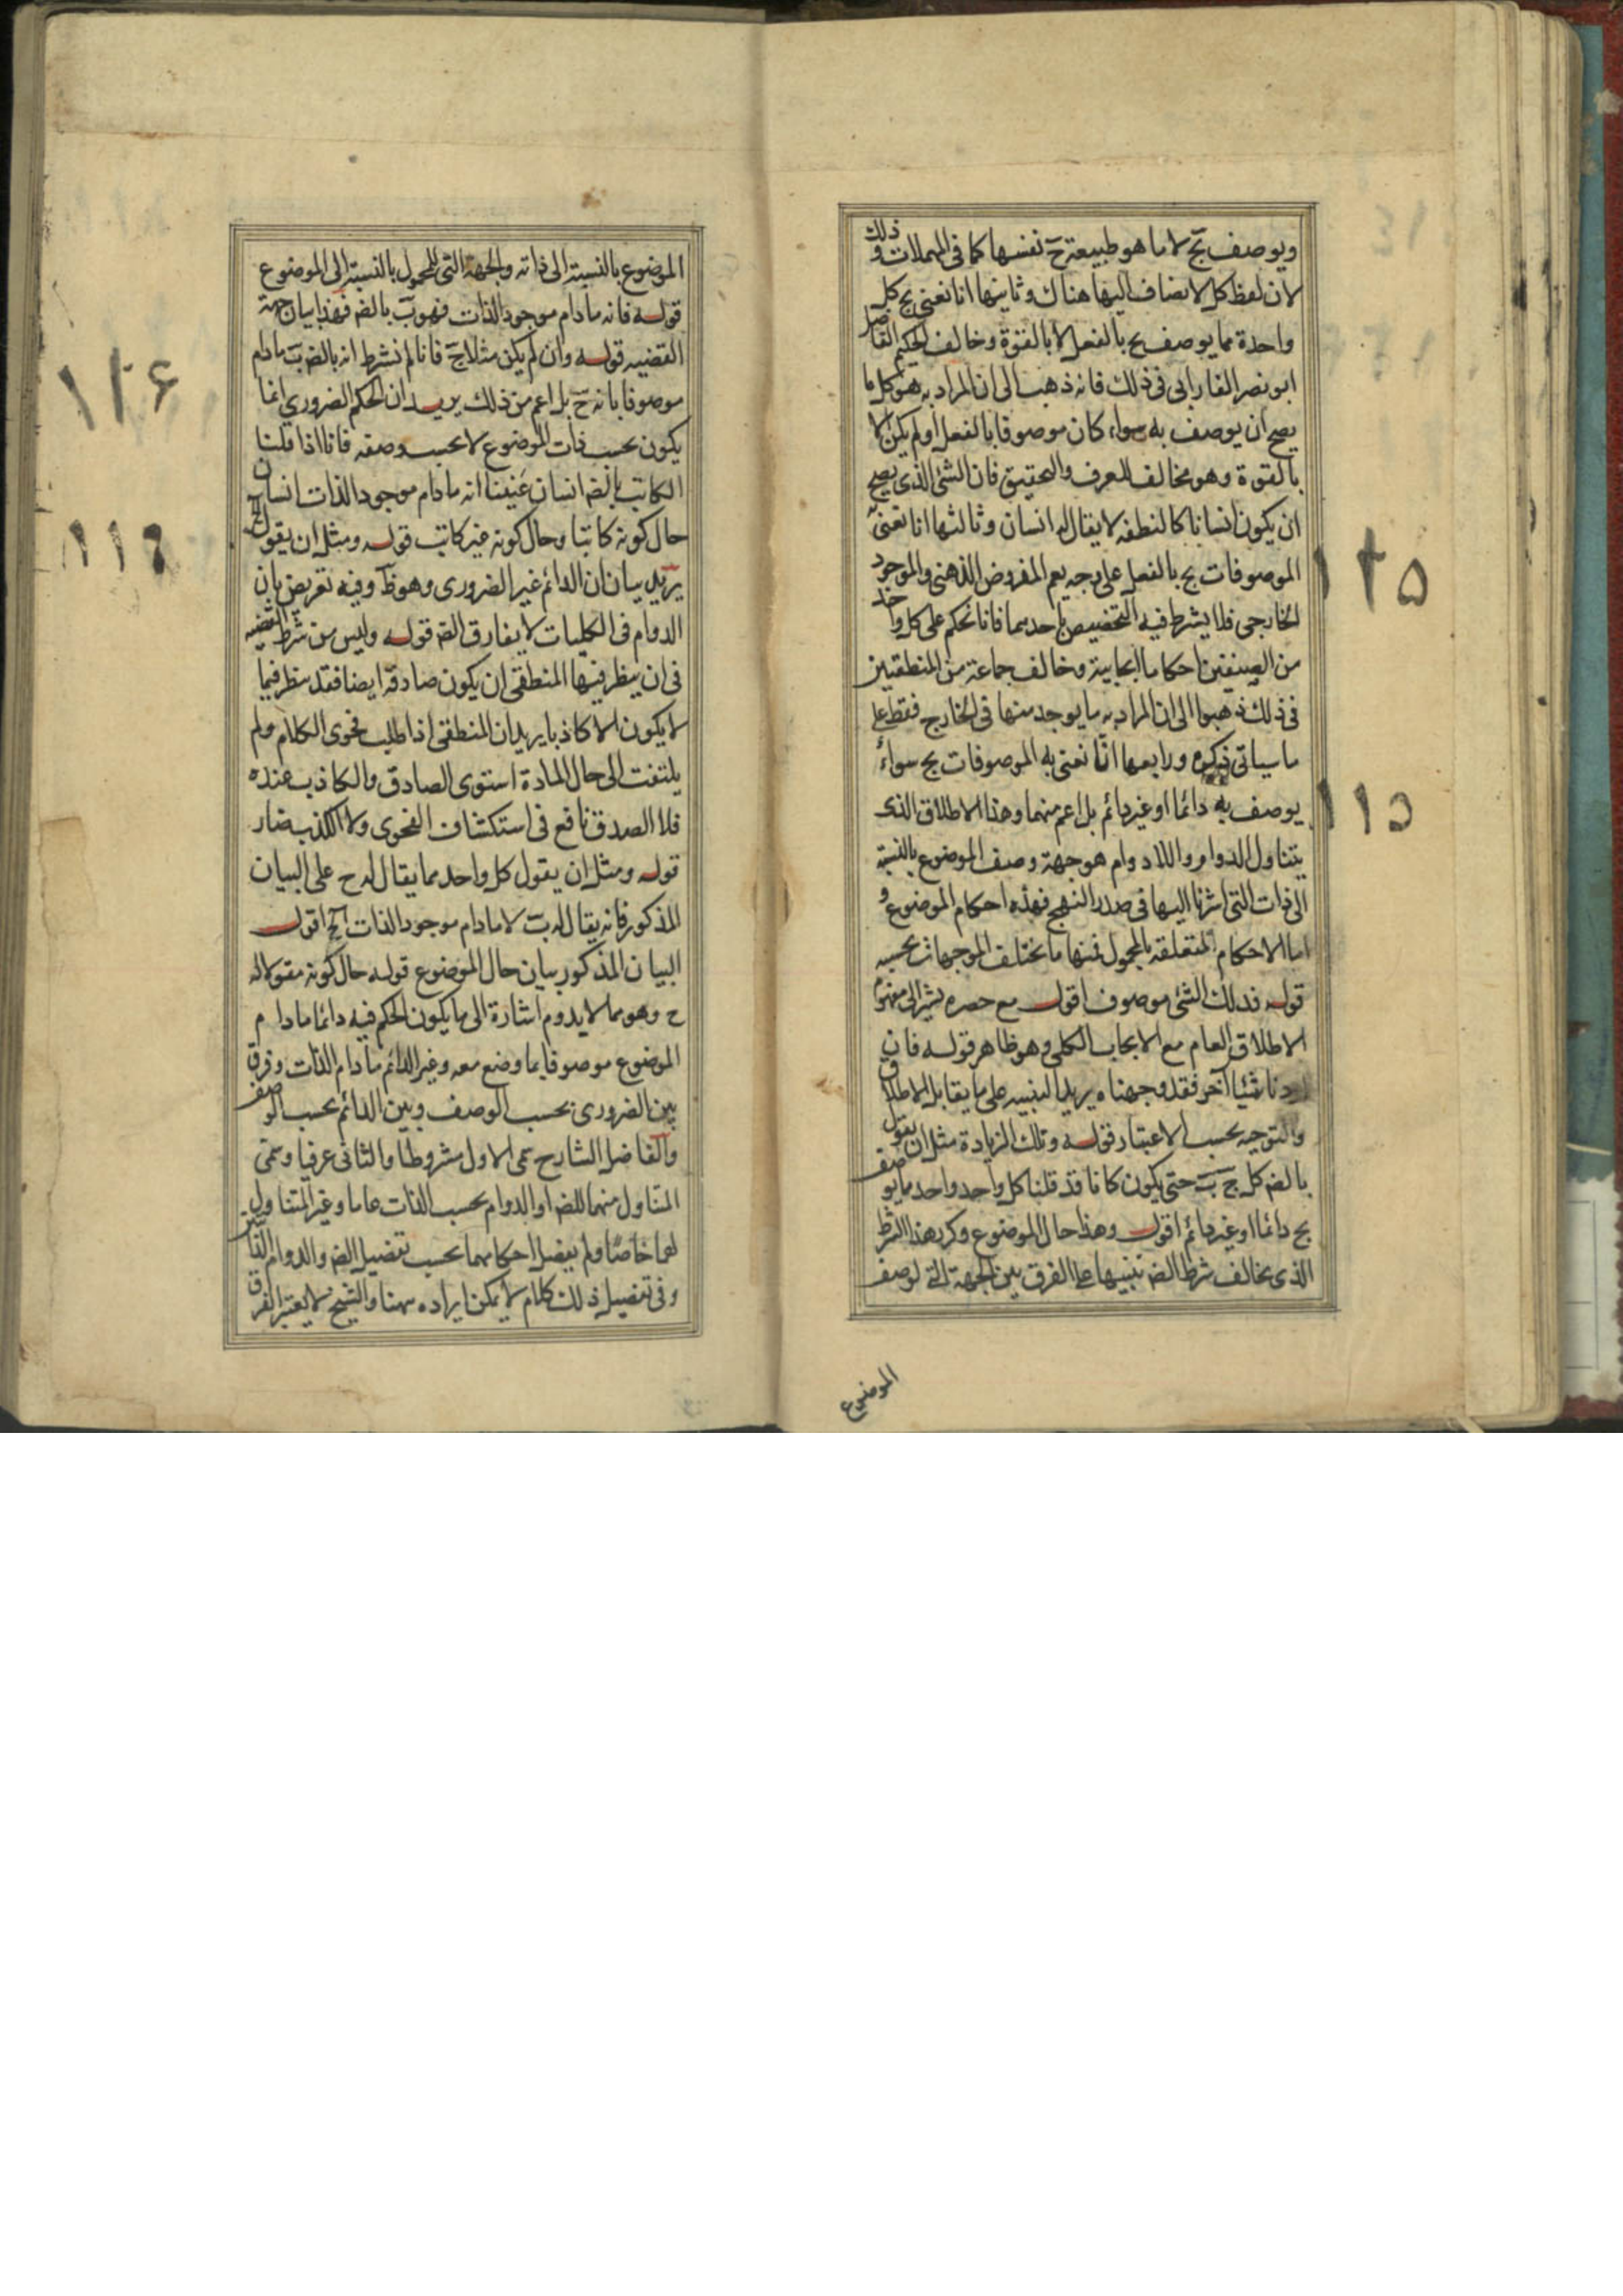 ويوصف بج لا ما هو طبيعة ج نفسها كما فى المهملات و ذلك
لان لفظ كل لا يضاف اليها هناك وثانيها انا نعنى بج كل
واحدة مما يوصف بج بالفعل لا بالقوة وخالف الحكيم الفاضل
ابو نصر الفارابى فى ذلك فانه ذهب الى ان المراد به هو كل ما
يصح ان يوصف به سواء كان موصوفا بالفعل او لم يكن الا
بالقوة وهو مخالف للعرف والتحقيق فان الشئ الذى يصح
ان يكون انسانا كالنطفه لا يقال له انسان وثالثها انا نعنى به
الموصوفات بج بالفعل على وجه يعم المفروض الذهنى والموجود
الخارجى فلا يشرط فيه التخصيص باحدهما فانا نحكم على كل واحد
من الصنفين احكاما ايجابية وخالف جماعة من المنطقيين
فى ذلك ذهبوا الى ان المراد به ما يوجد منها فى الخارج فقط على
ما سياتى ذكره ورابعها انا نعنى به الموصوفات بج سواء
يوصف به دائما او غير دائم بل اعم منهما وهذا الاطلاق الذى
يتناول الدوام واللادوام هو جهة وصف الموضوع بالنسبة
الى ذات التى اشرنا اليها فى صدر النهج فهذه احكام الموضوع و
اما الاحكام المتعلقه بالمحمول فمنها ما يختلف الموجهات بحسبه
قوله فذلك الشئ موصوف اقول مع حصره يشير الى مفهوم
الاطلاق العام مع الايجاب الكلى وهو ظاهر قوله فان
زدنا شيئا آخر فقد وجهناه يريد التنبيه على ما يقابل الاطلاق
والتوجيه بحسب الاعتبار قوله وتلك الزيادة مثل ان يقول
بالضه كل ج ب حتى يكون كانا قد قلنا كل واحد واحد مما يوصف
بج دائما او غير دائم اقول وهذا حال الموضوع وكر هذا الشرط
الذى يخالف شرط الضه تنبيها على الفرق بين الجهة التى لوصف
الموضوع
١٢٥
١١٥
الموضوع بالنسبة الى ذاته والجهة التى للمحمول بالنسبة الى الموضوع
قوله فانه ما دام موجود الذات فهو ب بالضه فهذا بيان جهة
القضيه قوله وان لم يكن مثلا ج فانا لم نشرط انه بالضه ب ما دام
موصوفا بانه ج بل اعم من ذلك يريد ان الحكم الضرورى انما
يكون بحسب ذات الموضوع لا بحسب وصفه فانا اذا قلنا
الكاتب بالضه انسان عنينا انه ما دام موجود الذات انسان
حال كونه كاتبا وحال كونه غير كاتب قوله ومثل ان يقول الخ
يريد بيان ان الدائم غير الضرورى وهو ظ وفيه تعريض بان
الدوام فى الكليات لا يفارق الضه قوله وليس من شرط القضيه
فى ان ينظر فيها المنطقى ان يكون صادقه ايضا فقد ينظر فيما
لا يكون الا كاذبا يريد ان المنطقى اذا طلب فحوى الكلام ولم
يلتفت الى حال المادة استوى الصادق والكاذب عنده
فلا الصدق نافع فى استكشاف الفحوى ولا الكذب ضار
قوله ومثل ان يقول كل واحد مما يقال له ج على البيان
المذكور فانه يقال له ب لا ما دام موجود الذات الخ اقول
البيان المذكور بيان حال الموضوع قوله حال كونه مقولا له
ج وهو مما لا يدوم اشارة الى ما يكون الحكم فيه دائما ما دام
الموضوع موصوفا بما وضع معه وغير الدائم ما دام الذات وفرق
بين الضرورى بحسب الوصف وبين الدائم بحسب الوصف
والفاضل الشارح سمى الاول مشروطا والثانى عرفيا وسمى
المتناول منهما للضه او الدوام بحسب الذات عاما وغير المتناول
لهما خاصا ولم يفصل احكامهما بحسب تفصيل الضه والدوام
وفى تفصيل ذلك كلام لا يمكن ايراده ههنا والشيخ لا يعتبر الفرق
١٢۶
١١٦